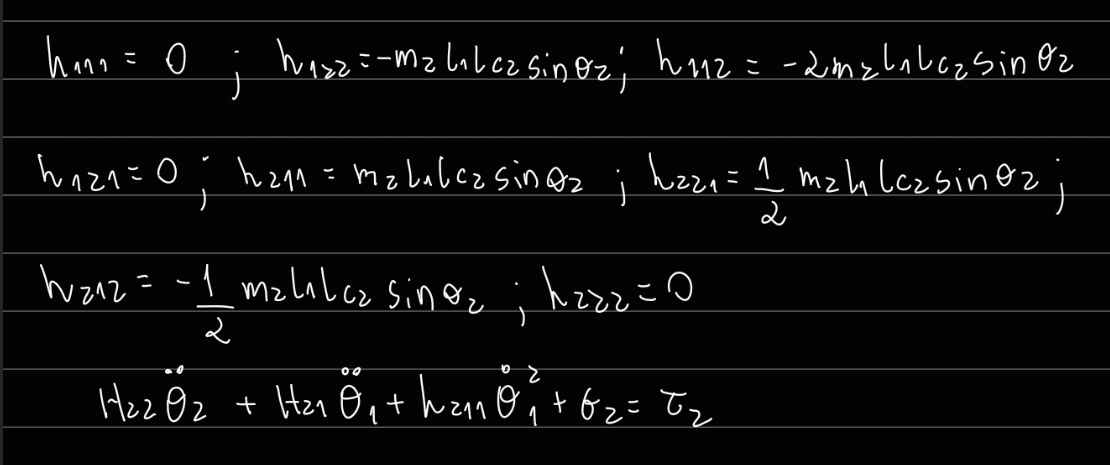 h₁₁₁ = 0 ; h₁₂₂ = -m₂ l₁ lc₂ sin θ₂ ; h₁₁₂ = -2m₂ l₁ lc₂ sin θ₂
h₁₂₁ = 0 ; h₂₁₁ = m₂ l₁ lc₂ sin θ₂ ; h₂₂₁ = 1/2 m₂ l₁ lc₂ sin θ₂ ;
h₂₁₂ = -1/2 m₂ l₁ lc₂ sin θ₂ ; h₂₂₂ = 0
H₂₂ θ̈₂ + H₂₁ θ̈₁ + h₂₁₁ θ̇₁² + G₂ = τ₂